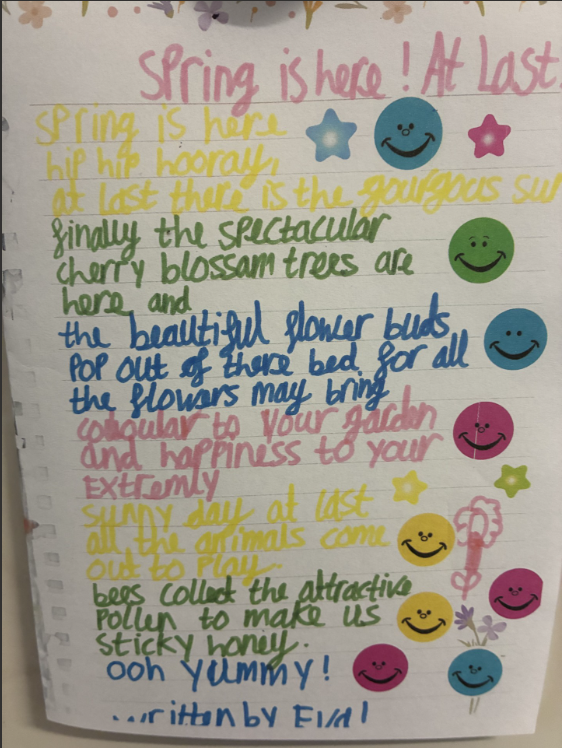 Spring is here! At Last
Spring is here
hip hip hooray,
at last there is the gourgous sun
finally the spectacular
cherry blossam trees are
here and
the beautiful flower buds
pop out of there bed for all
the flowers may bring
to your garden
and happiness to your
extremly
sunny day at last
all the animals come
out to play.
bees collect the attractive
pollen to make us
sticky honey.
ooh yummy!
written by